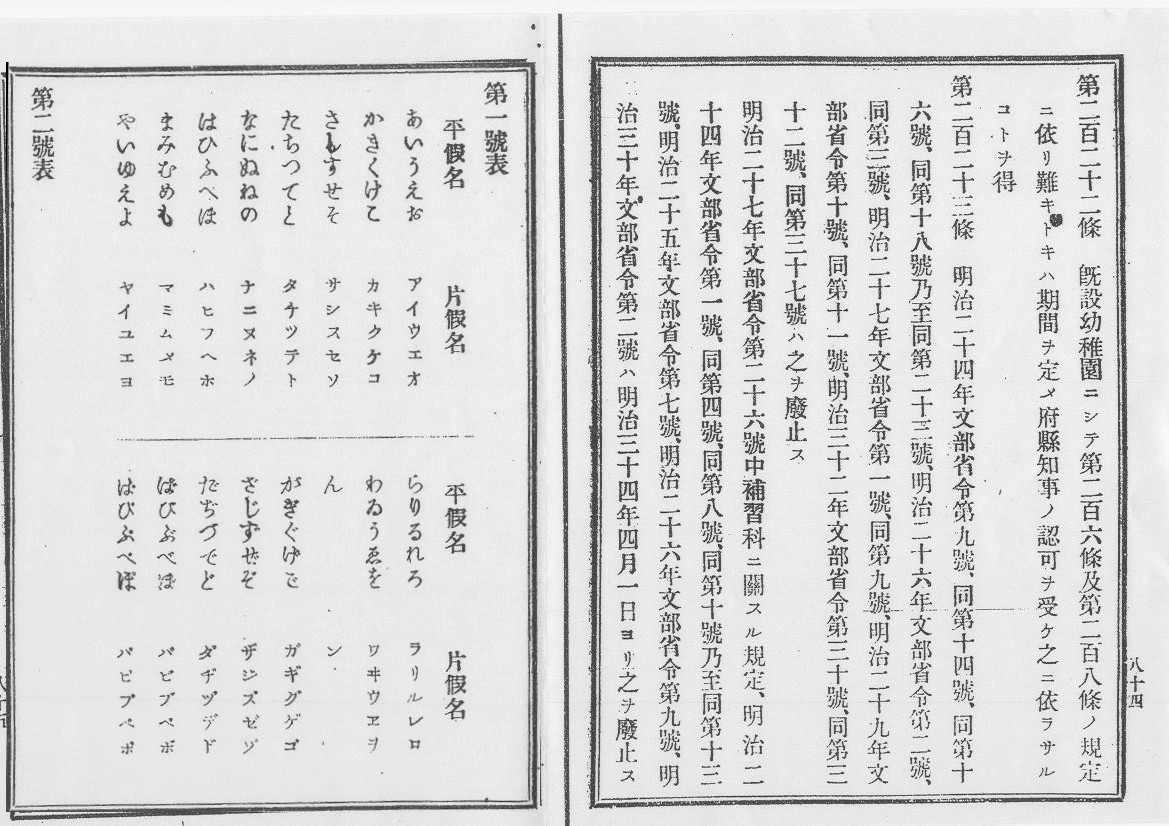 八十四
第二百二十二條 既設幼稚園ニシテ第二百六條及第二百八條ノ規定
ニ依リ難キトキハ期間ヲ定メ府縣知事ノ認可ヲ受ケ之ニ依ラサル
コトヲ得
第二百二十三條 明治二十四年文部省令第九號、同第十四號、同第十
六號、同第十八號乃至同第二十三號、明治二十六年文部省令第二號、
同第三號、明治二十七年文部省令第一號、同第九號、明治二十九年文
部省令第十號、同第十一號、明治三十二年文部省令第三十號、同第三
十二號、同第三十七號ハ之ヲ廢止ス
明治二十七年文部省令第二十六號中補習科ニ關スル規定、明治二
十四年文部省令第一號、同第四號、同第八號、同第十號乃至同第十三
號、明治二十五年文部省令第七號、明治二十六年文部省令第九號、明
治三十年文部省令第二號ハ明治三十四年四月一日ヨリ之ヲ廢止ス
第一號表
平假名 片假名 平假名 片假名
あいうえお アイウエオ らりるれろ ラリルレロ
かきくけこ カキクケコ わゐうゑを ワヰウヱヲ
さしすせそ サシスセソ ん ン
たちつてと タチツテト がぎぐげご ガギグゲゴ
なにぬねの ナニヌネノ ざじずぜぞ ザジズゼゾ
はひふへほ ハヒフヘホ だぢづでど ダヂヅデド
まみむめも マミムメモ ばびぶべぼ バビブベボ
やいゆえよ ヤイユエヨ ぱぴぷぺぽ パピプペポ
第二號表